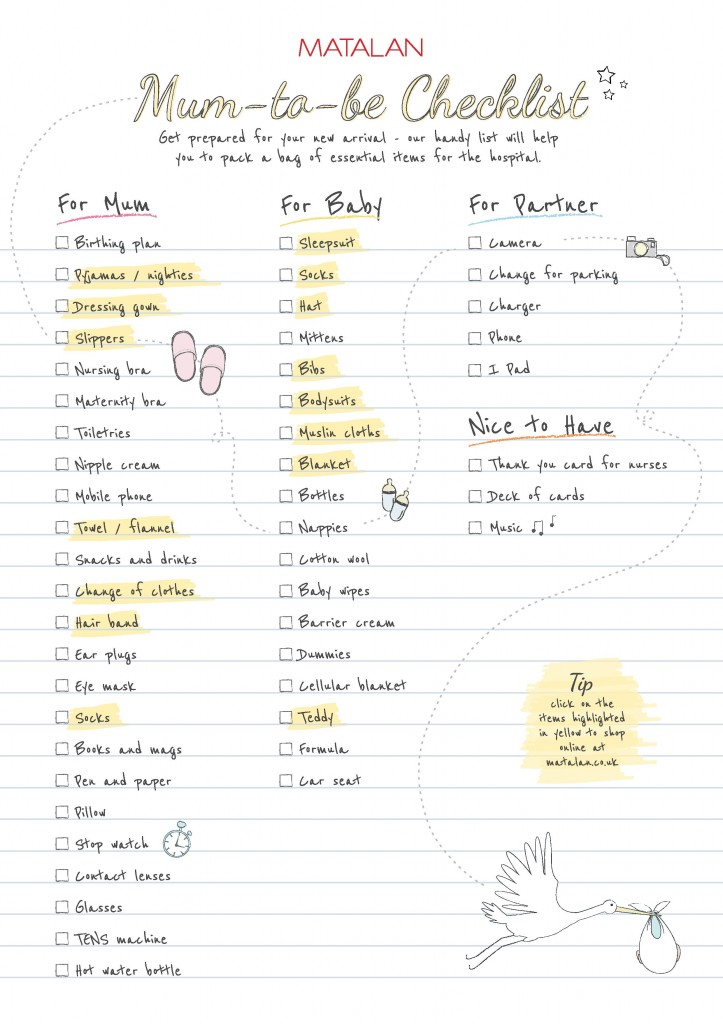 MATALAN
Mum-to-be Checklist
Get prepared for your new arrival - our handy list will help
you to pack a bag of essential items for the hospital.
For Mum
Birthing plan
Pyjamas / nighties
Dressing gown
Slippers
Nursing bra
Maternity bra
Toiletries
Nipple cream
Mobile phone
Towel / flannel
Snacks and drinks
Change of clothes
Hair band
Ear plugs
Eye mask
Socks
Books and mags
Pen and paper
Pillow
Stop watch
Contact lenses
Glasses
TENS machine
Hot water bottle
For Baby
Sleepsuit
Socks
Hat
Mittens
Bibs
Bodysuits
Muslin cloths
Blanket
Bottles
Nappies
Cotton wool
Baby wipes
Barrier cream
Dummies
Cellular blanket
Teddy
Formula
Car seat
For Partner
Camera
Change for parking
Charger
Phone
I Pad
Nice to Have
Thank you card for nurses
Deck of cards
Music
Tip
click on the
items highlighted
in yellow to shop
online at
matalan.co.uk